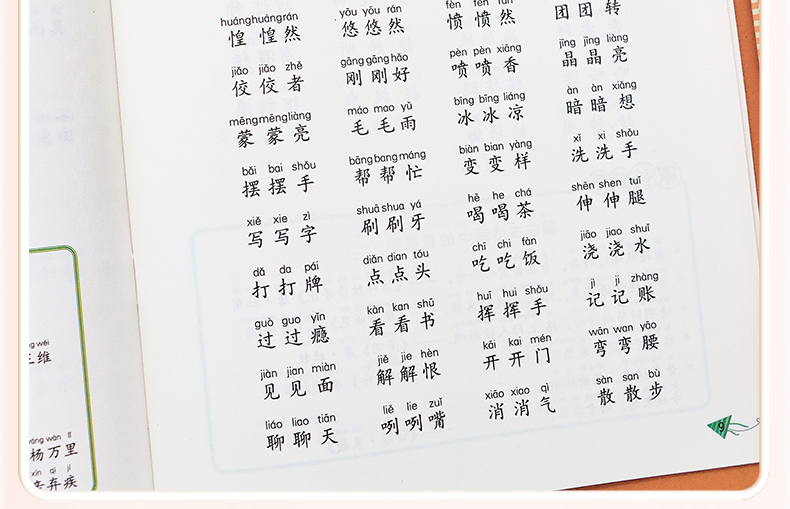 huánghuángrán yōu yōu rán fèn fèn rán
惶惶然 悠悠然 愤愤然 团团转
jiǎo jiǎo zhě gānggānghǎo pèn pèn xiāng jīng jīng liàng
佼佼者 刚刚好 喷喷香 晶晶亮
mēngmēngliàng máo mao yǔ bīng bīng liáng àn àn xiǎng
蒙蒙亮 毛毛雨 冰冰凉 暗暗想
bǎi bai shǒu bāng bang máng biàn bian yàng xǐ xi shǒu
摆摆手 帮帮忙 变变样 洗洗手
xiě xie zì shuā shua yá hē he chá shēn shen tuǐ
写写字 刷刷牙 喝喝茶 伸伸腿
dǎ da pái diǎn dian tóu chī chi fàn jiāo jiao shuǐ
打打牌 点点头 吃吃饭 浇浇水
guò guo yǐn kàn kan shū huī hui shǒu jì ji zhàng
过过瘾 看看书 挥挥手 记记账
jiàn jian miàn jiě jie hèn kāi kai mén wān wan yāo
见见面 解解恨 开开门 弯弯腰
liáo liao tiān liě lie zuǐ xiāo xiao qì sàn san bù
聊聊天 咧咧嘴 消消气 散散步
9
wéi
维
yáng wàn lǐ
杨万里
xīn qì jí
辛弃疾